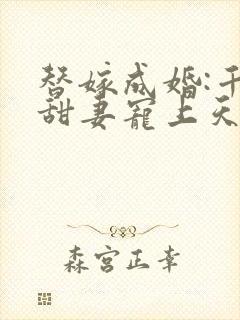 替嫁成婚:千
甜妻寵上天
森宫正幸